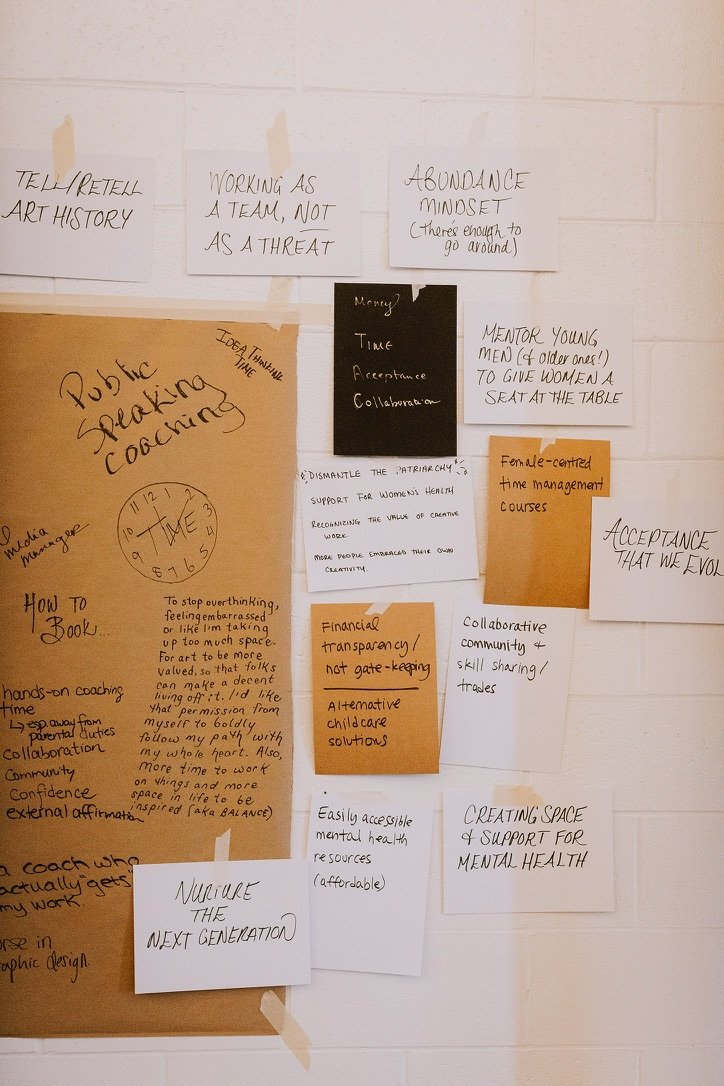 TELL/RETELL
ART HISTORY
WORKING AS
A TEAM, NOT
AS A THREAT
ABUNDANCE
MINDSET
(there's enough to
go around)
Money
TIME
Acceptance
Collaboration
MENTOR YOUNG
MEN (& older ones!)
TO GIVE WOMEN A
SEAT AT THE TABLE
IDEA THINKING
TIME
Public
Speaking
Coaching
12 1 2 3 4 5 6 7 8 9 10 11
TIME
media
manager
HOW TO
BOOK...
hands-on coaching
time
↳ esp. away from
parental duties
collaboration
community
confidence
external affirmation
a coach who
actually "gets"
my work
design.
To stop overthinking,
feeling embarrassed
or like I'm taking
up too much space.
For art to be more
valued, so that folks
can make a decent
living off it. I'd like
that permission from
myself to boldly
follow my path with
my whole heart. Also,
more time to work
on things and more
space in life to be
inspired (aka BALANCE)
DISMANTLE THE PATRIARCHY
SUPPORT FOR WOMEN'S HEALTH
RECOGNIZING THE VALUE OF CREATIVE
WORK
MORE PEOPLE EMBRACED THEIR OWN
CREATIVITY.
Female-centred
time management
courses
ACCEPTANCE
THAT WE EVOL
Financial
transparency/
not gate-keeping
Alternative
childcare
solutions
Collaborative
community &
skill sharing/
trades
Easily accessible
mental health
resources
(affordable)
CREATING SPACE
& SUPPORT FOR
MENTAL HEALTH
NURTURE
THE
NEXT GENERATION